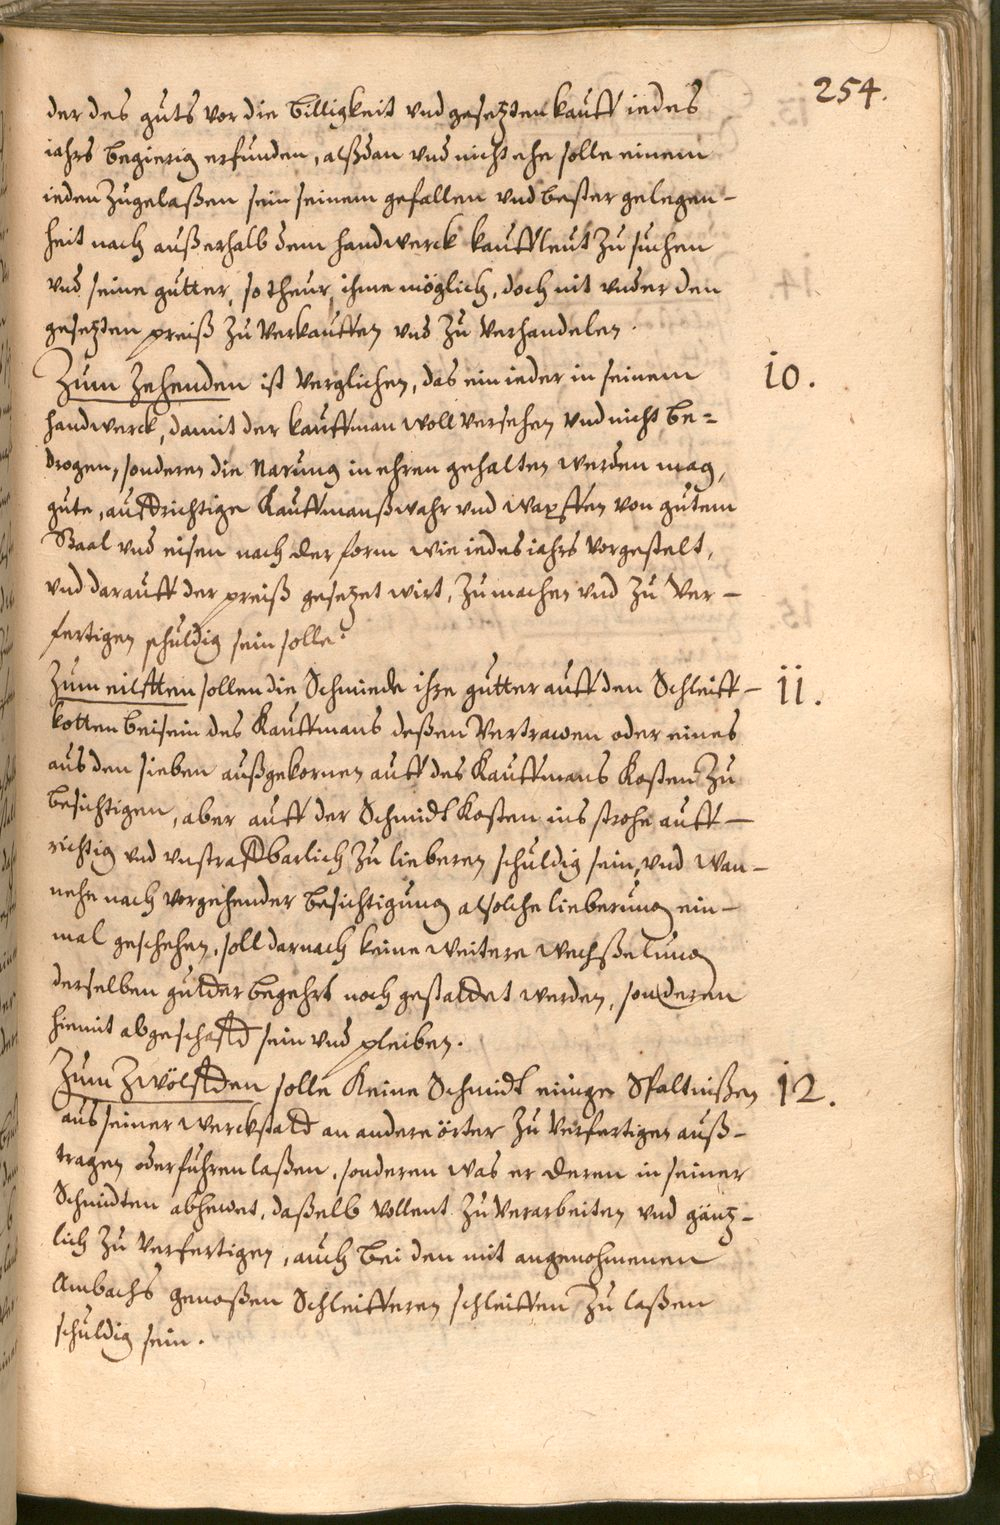 254.
der des guts vor die billigkeit vnd gesetzten kauff iedes
iahrs begierig erfunden, alßdan vnd nicht ehe solle einem
ieden zugelaßen sein seinem gefallen vnd bester gelegen-
heit nach außerhalb dem handwerck kauffleut zu suchen
vnd seine gutter, so theur, ihme möglich, doch nit vnder den
gesetzten preiß zu verkauffen vnd zu verhandelen.
Zum Zehenden ist verglichen, das ein ieder in seinem
10.
handwerck, damit der kauffman woll versehen vnd nicht be=
drogen, sonderen die Narung in ehren gehalten werden mag,
gute, auffrichtige Kauffmanßwahr vnd wapffen von gutem
Staal vnd eisen nach der form wie iedes iahrs vorgestelt,
vnd darauff der preiß gesetzet wirt, zu machen vnd zu ver-
fertigen schuldig sein solle.
Zum eilfften sollen die Schmiede ihre gutter auff den Schleiff-
11.
kotten beisein des Kauffmans deßen vertrawen oder eines
aus den sieben außgekornen auff des Kauffmans Kosten zu
besichtigen, aber auff der Schmidt Kosten ins strohe auff-
richtig vnd vnstraffbarlich zu lieberen schuldig sein, vnd wan-
nehe nach vorgehender besichtigung alsolche lieberung ein-
mal geschehen, soll darnach keine weitere wechßelung
derselben gutder begehrt noch gestaddet werden, sonderen
hiemit abgeschafft sein vnd pleiben.
Zum Zwölfften solle Keine Schmidt einige Spaltnißen
12.
aus seiner werckstadt an andere örter zu verfertigen auß-
tragen oder fuhren laßen, sonderen was er deren in seiner
Schmidten abhewet, daßelb vollent zu verarbeiten vnd gäntz-
lich zu verfertigen, auch bei den mit angenohmenen
Ambachs genoßen Schleifferen schleiffen zu laßen
schuldig sein.